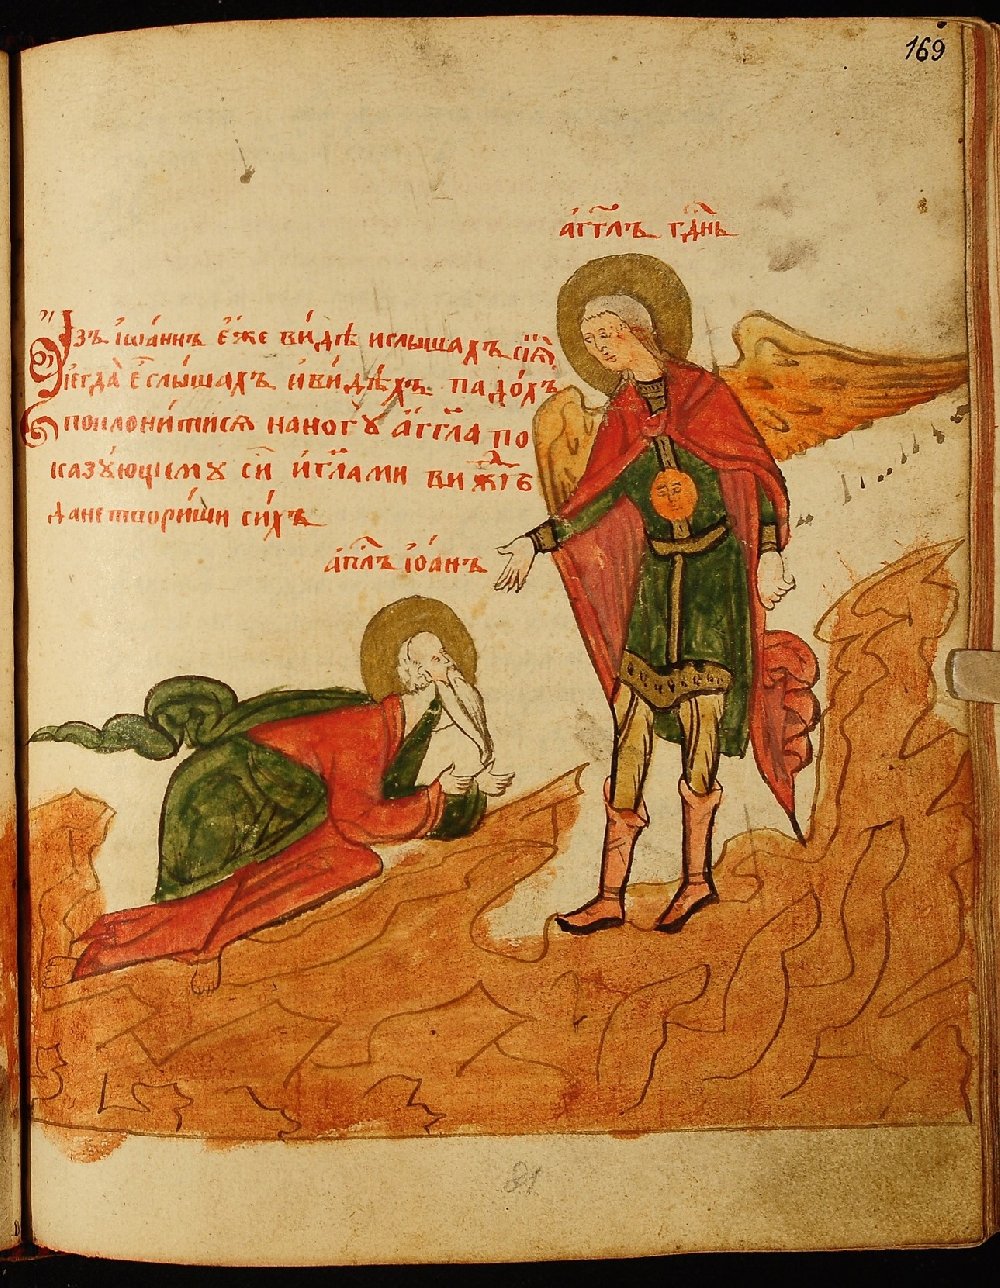 169
а҆гг҃лъ гд҇нь
И҆зъ і҆ѡа́ннъ е҆́же ви́дѣ и слышахъ сїѧ̀
и є҆гда̀ е҆ слы́шахъ и҆ ви́дѣхъ падо́хъ
поклони́тисѧ на ногꙋ̀ а҆́гг҃ла по
казꙋ́ющемꙋ сїѝ и҆ гл҃а ми виж҇
да не твори́ши си́хъ
а҆пл҇ъ і҆оа́нъ